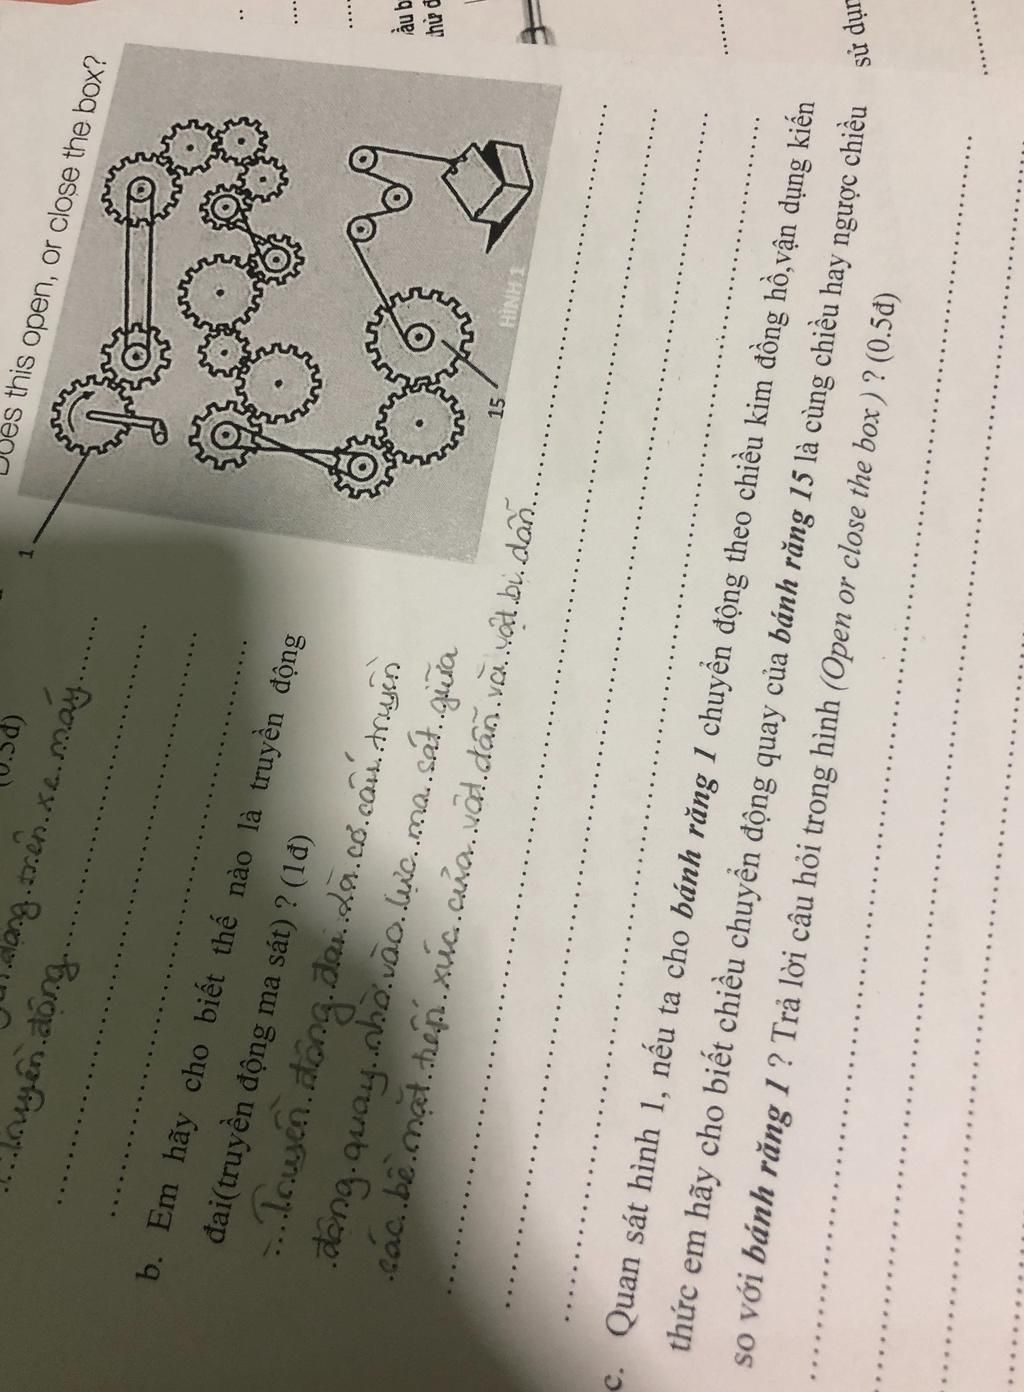 Does this open, or close the box?
1
15
HÌNH 1
(0.5đ)
truyền động trên xe máy
b. Em hãy cho biết thế nào là truyền động
đai(truyền động ma sát) ? (1đ)
Truyền động đai là cơ cấu truyền
động quay nhờ vào lực ma sát giữa
các bề mặt tiếp xúc của vật dẫn và vật bị dẫn
c. Quan sát hình 1, nếu ta cho bánh răng 1 chuyển động theo chiều kim đồng hồ,vận dụng kiến
thức em hãy cho biết chiều chuyển động quay của bánh răng 15 là cùng chiều hay ngược chiều
so với bánh răng 1 ? Trả lời câu hỏi trong hình (Open or close the box) ? (0.5đ)
sử dụn